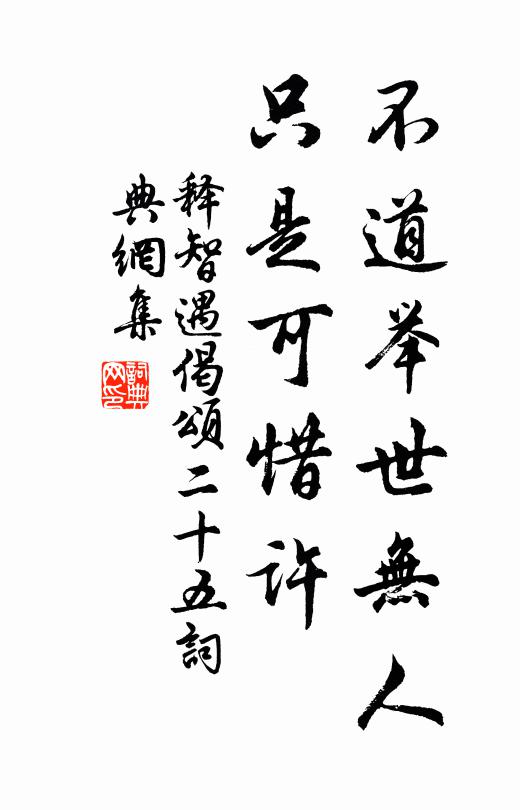 不道举世無人
只是可惜许
释智遇偈頌二十五詞
典網集
詞典网印